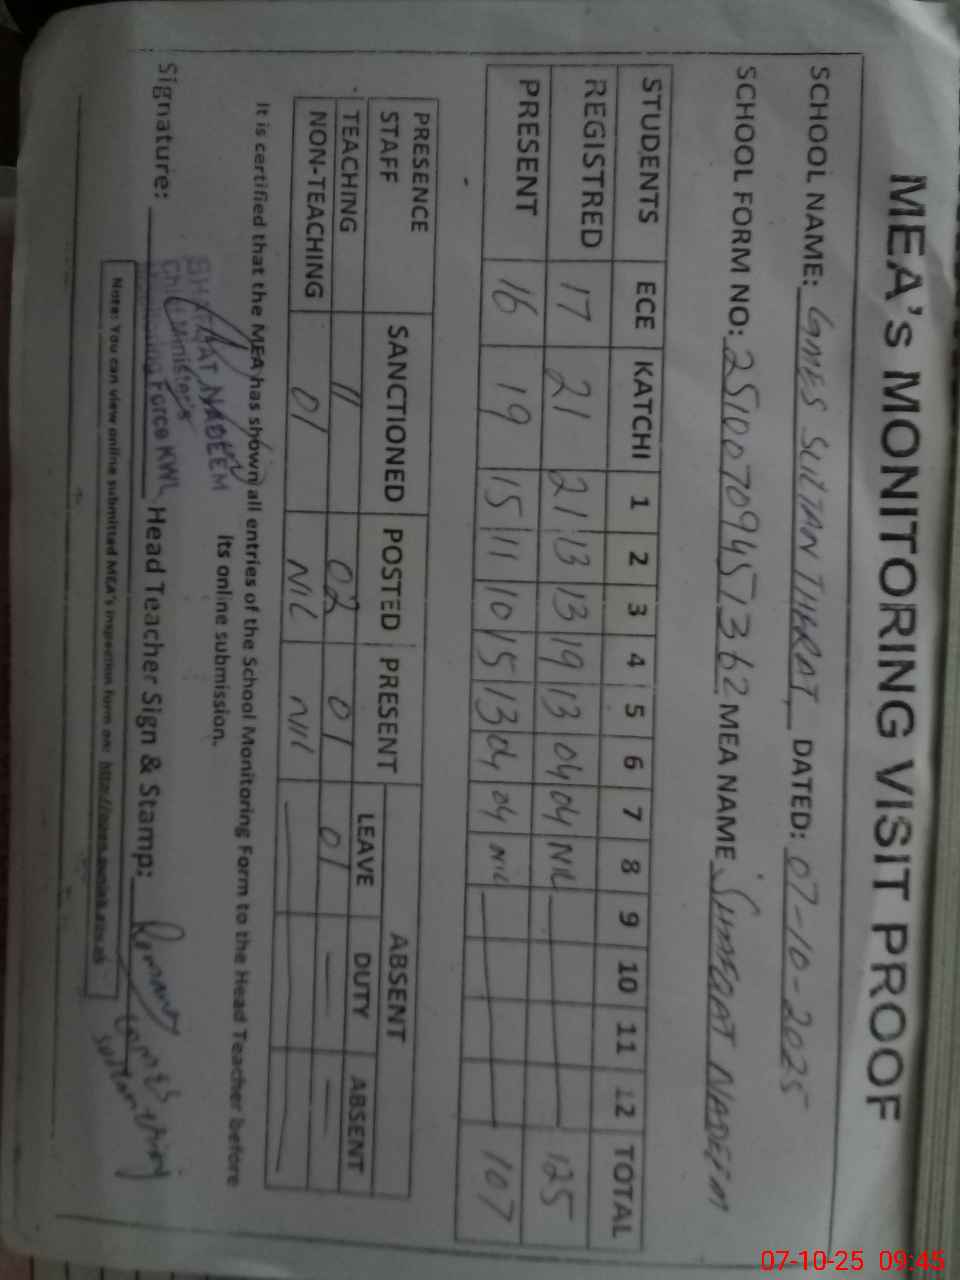 MEA's MONITORING VISIT PROOF
SCHOOL NAME: GMES SULTAN THHRAT, DATED: 07-10-2025
SCHOOL FORM NO: 251007094571362 MEA NAME SHAFQAT NADEEM
STUDENTS ECE KATCHI 1 2 3 4 5 6 7 8 9 10 11 12 TOTAL
REGISTRED 17 21 21 13 13 19 13 04 04 NIL 125
PRESENT 16 19 15 11 10 15 13 04 04 NIL 107
PRESENCE STAFF SANCTIONED POSTED PRESENT ABSENT
LEAVE DUTY ABSENT
TEACHING 11 02 01 01 — —
NON-TEACHING 01 NIL NIL
It is certified that the MEA has shown all entries of the School Monitoring Form to the Head Teacher before
its online submission.
SHAFQAT NADEEM
Chief Minister's
Monitoring Force KWL
Signature: Head Teacher Sign & Stamp:
Note: You can view online submitted MEA's inspection form on:
07-10-25 09:45